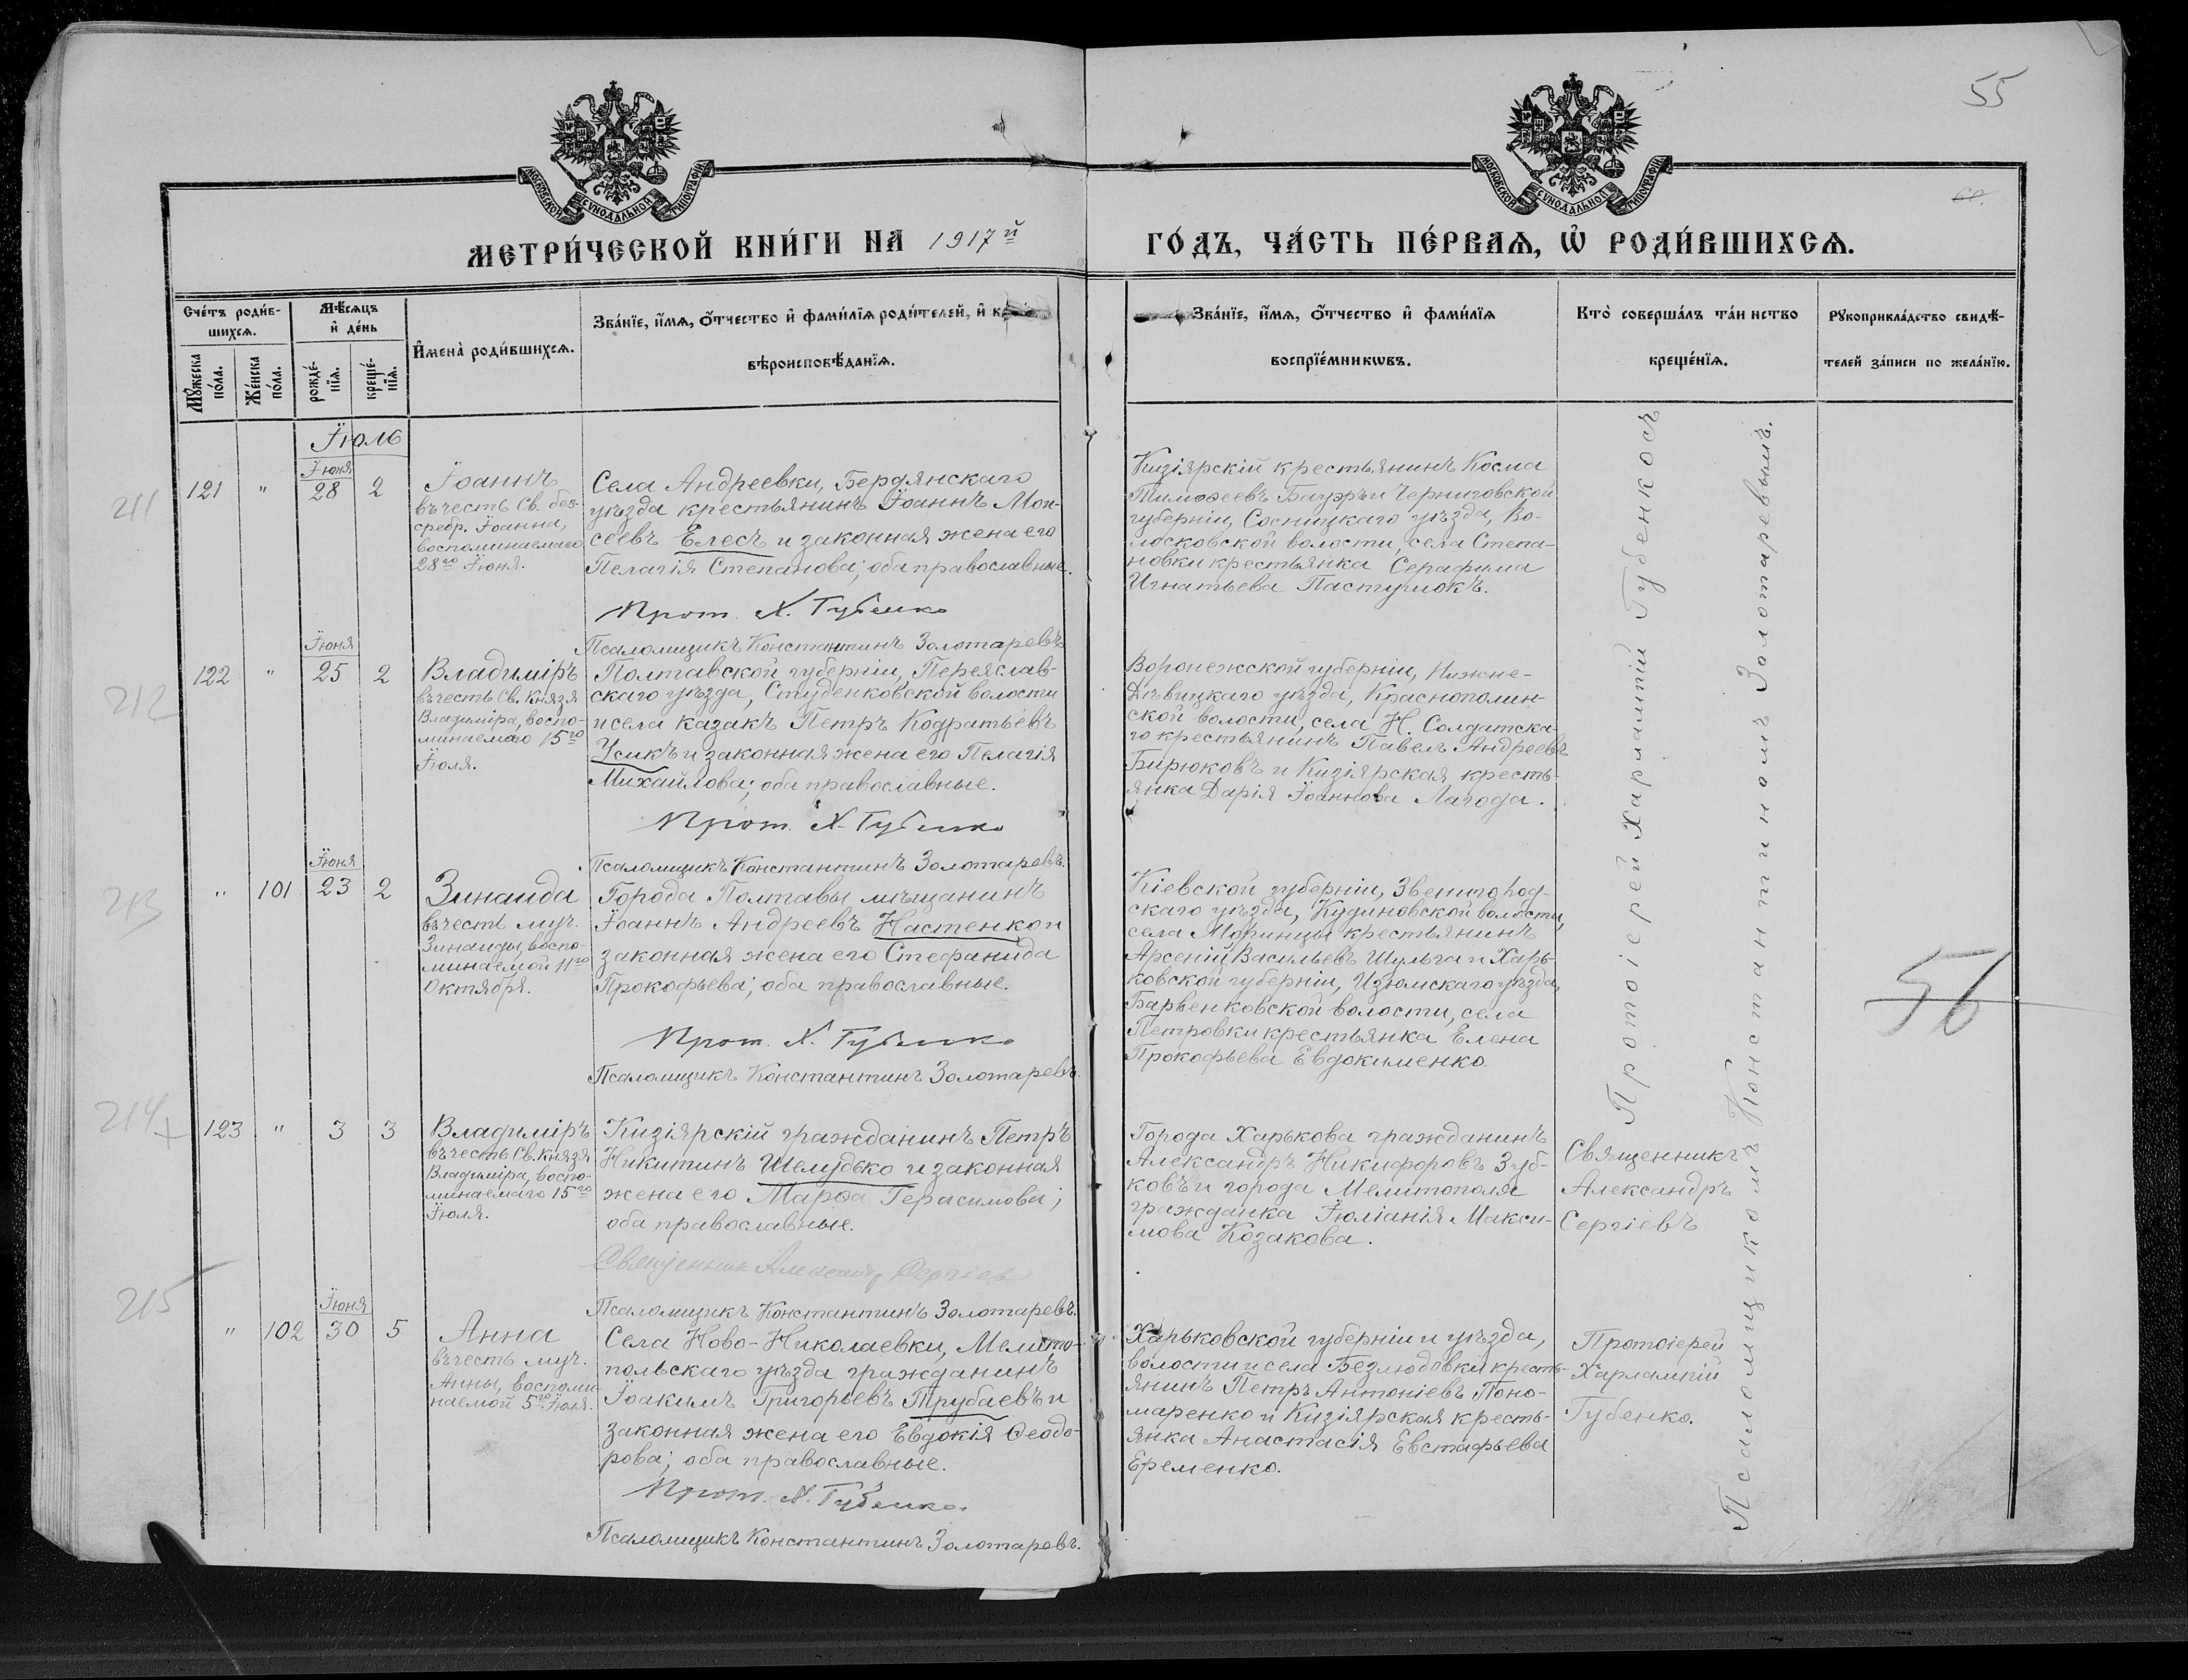 55
МОСКОВСКОЙ СѴНОДАЛЬНОЙ ТИПОГРАФІИ
МОСКОВСКОЙ СѴНОДАЛЬНОЙ ТИПОГРАФІИ
МЕТРИ́ЧЕСКОЙ КНИ́ГИ НА 1917й ГО́ДЪ, ЧА́СТЬ ПЕ́РВАѦ, Ѡ҆ РОДИ́ВШИХСѦ.
Сче́тъ роди́в-
шихсѧ.
Мѣ́сѧцъ
и҆ де́нь
Мꙋ́жеска
по́ла.
Же́нска
по́ла.
рожде́-
нїѧ.
креще́-
нїѧ.
И҆мена̀ роди́вшихсѧ.
Зва́нїе, и҆́мѧ, ѻ҆́тчество и҆ фами́лїѧ роди́телей, и҆ к
вѣроисповѣ́данїѧ.
Зва́нїе, и҆́мѧ, ѻ҆́тчество и҆ фами́лїѧ
воспрїе́мникѡвъ.
Кто̀ соверша́лъ та́инство
креще́нїѧ.
Рꙋкоприкла́дство свидѣ́-
телей за́писи по жела́нїю.
Іюль
211
121 " Іюня 28 2
Іоаннъ
въ честь Св. без-
сребр. Іоанна,
воспоминаемаго
28го Іюня.
Села Андреевки, Бердянскаго
уѣзда крестьянинъ Іоаннъ Мои-
сеевъ Елесъ и законная жена его
Пелагія Степанова; оба православные.
Прот. Х. Губенко
Псаломщикъ Константинъ Золотаревъ
Кизіярскій крестьянинъ Косма
Тимоѳеевъ Бауэръ и Черниговской
губерніи, Сосницкаго уѣзда, Во-
лосковской волости, села Степа-
новки крестьянка Серафима
Игнатьева Пастушокъ.
212
122 " Іюня 25 2
Владиміръ
въ честь Св. Князя
Владиміра, воспо-
минаемаго 15го
Іюля.
Полтавской губерніи, Переяслав-
скаго уѣзда, Студенковской волости
и села казакъ Петръ Кодратьевъ
Усикъ и законная жена его Пелагія
Михайлова; оба православные.
Прот. Х. Губенко
Псаломщикъ Константинъ Золотаревъ.
Воронежской губерніи, Нижне-
Дѣвицкаго уѣзда, Краснополин-
ской волости, села Н. Солдатска-
го крестьянинъ Павелъ Андреевъ
Бирюковъ и Кизіярская кресть-
янка Дарія Іоаннова Лагода.
213
" 101 Іюня 23 2
Зинаида
въ честь муч.
Зинаиды, воспо-
минаемой 11го
Октября.
Города Полтавы мѣщанинъ
Іоаннъ Андреевъ Настенко и
законная жена его Стефанида
Прокофьева; оба православные.
Прот. Х. Губенко
Псаломщикъ Константинъ Золотаревъ.
Кіевской губерніи, Звенигород-
скаго уѣзда, Кудиновской волости,
села Моринцы крестьянинъ
Арсеній Васильевъ Шульга и Харь-
ковской губерніи, Изюмскаго уѣзда,
Барвенковской волости, села
Петровки крестьянка Елена
Прокофьева Евдокименко.
56
214
123 " 3 3
Владиміръ
въ честь Св. Князя
Владиміра, воспо-
минаемаго 15го
Іюля.
Кизіярскій гражданинъ Петръ
Никитинъ Шелудько и законная
жена его Марѳа Герасимова;
оба православные.
Священник Александр Сергіев
Псаломщикъ Константинъ Золотаревъ.
Города Харькова гражданинъ
Александръ Никифоровъ Зуб-
ковъ и города Мелитополя
гражданка Іюліанія Макси-
мова Козакова.
Священникъ
Александръ
Сергіевъ
215
" 102 Іюня 30 5
Анна
въ честь муч.
Анны, воспоми-
наемой 5го Іюля.
Села Ново-Николаевки, Мелито-
польскаго уѣзда гражданинъ
Іоакимъ Григорьевъ Трубаевъ и
законная жена его Евдокія Ѳеодо-
рова; оба православные.
Прот. Х. Губенко.
Псаломщикъ Константинъ Золотаревъ.
Харьковской губерніи и уѣзда,
волости и села Безлюдовки кресть-
янинъ Петръ Антоніевъ Поно-
маренко и Кизіярская кресть-
янка Анастасія Евстафьева
Еременко.
Протоіерей
Харлампій
Губенко.
Протоіерей Харлампій Губенко съ
Псаломщикомъ Константиномъ Золотаревымъ.